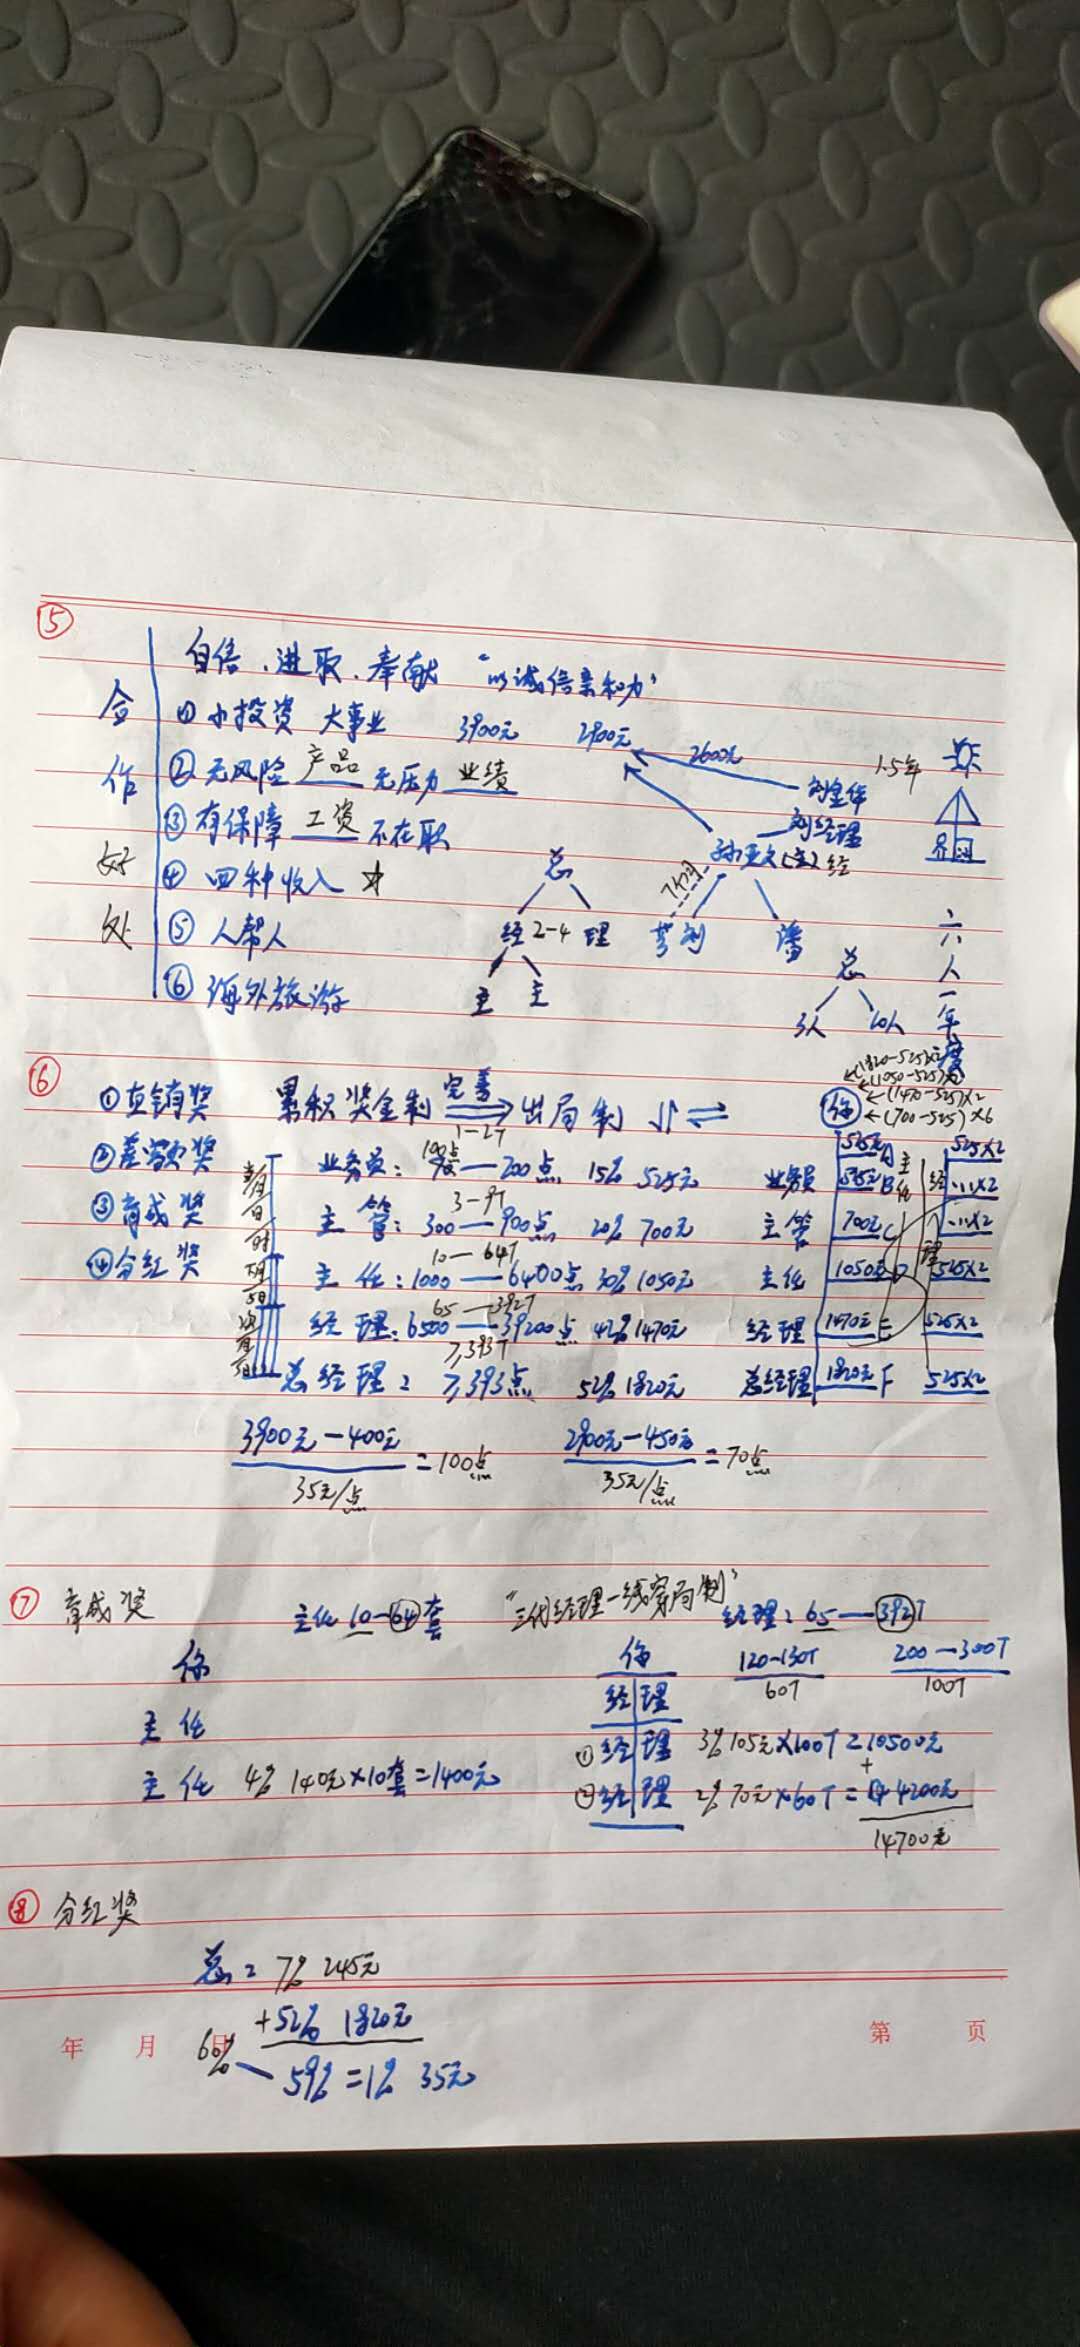 ⑤
合作好处
自信、进取、奉献 "以诚信亲和力"
① 小投资 大事业 3900元 2900元 2600元
② 无风险 产品 无压力 业绩
1.5年
③ 有保障 工资 不在职
刘经理
④ 四种收入 ☆
总
经 2-4 理
⑤ 人帮人
主 主
潘
⑥ 海外旅游
总
3人 10人
六人一年度
⑥
① 直销奖 累积奖金制 完善 出局制
你
(1820-525)元
(1050-525)元
(1470-525)×2
(700-525)×6
② 差额奖
1-2T
业务员: 100点—200点 15% 525元
业务员 525元 A
525元 B
主任
经理
525×2
③ 育成奖
3-9T
主管: 300—900点 20% 700元
主管 700元 C
④ 分红奖
10—64T
主任: 1000—6400点 30% 1050元
主任 1050元 D
525×2
65—392T
经理: 6500—39200点 42% 1470元
经理 1470元 E
525×2
≥393T
总经理: ≥393点 52% 1820元
总经理 1820元 F
525×2
3900元-400元
35元/点
=100点
2900元-450元
35元/点
=70点
⑦ 育成奖
主任 10-64套
"三代经理一线穿局制"
经理: 65—392T
你
主任
主任 4% 140元×10套=1400元
你
经理
120-130T
60T
200—300T
100T
① 经理 3% 105元×100T=10500元
+
② 经理 2% 70元×60T=4200元
14700元
⑧ 分红奖
总: 7% 245元
+52% 1820元
60% 59% =1% 35元
年 月 日
第 页